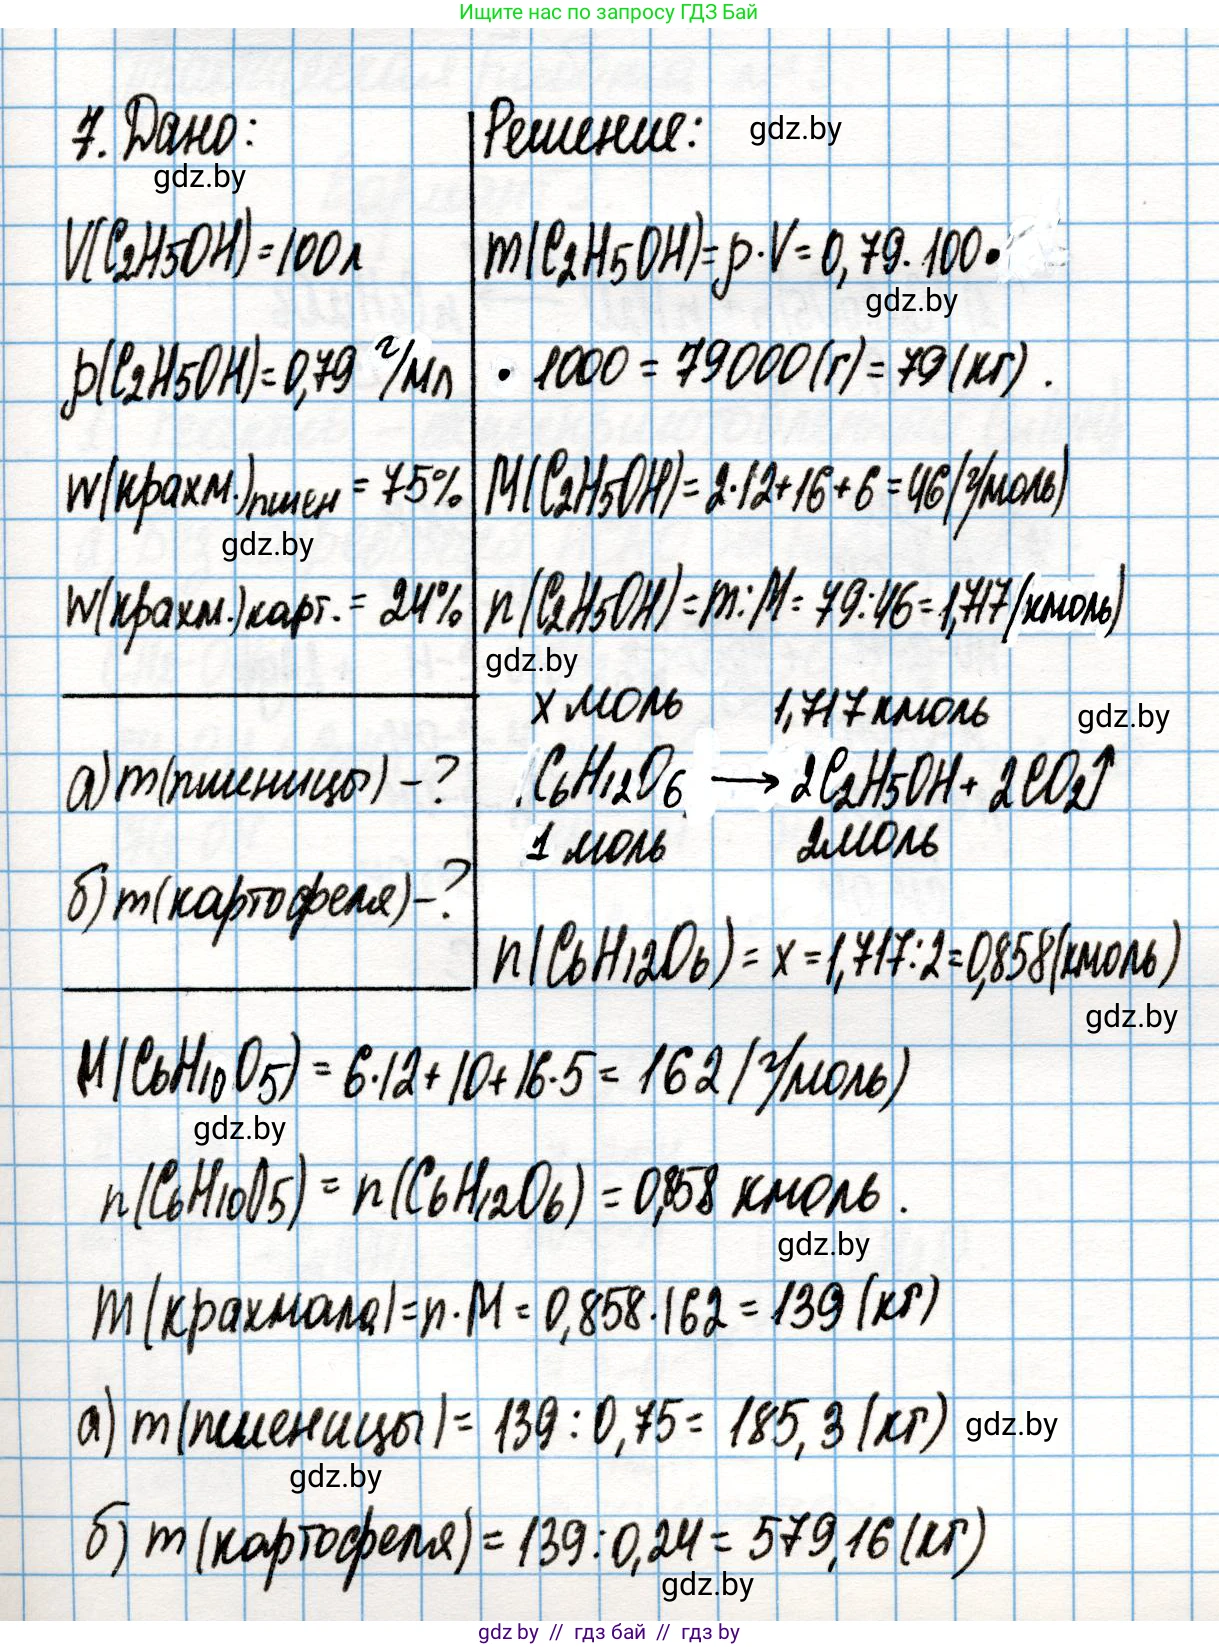 Ищите нас по запросу ГДЗ Бай
7. Дано:
gdz.by
V(C2H5OH)=100л
ρ(C2H5OH)=0,79 г/мл
w(крахм.)пшен = 75%
gdz.by
w(крахм.)карт. = 24%
а) m(пшеницы) - ?
б) m(картофеля) - ?
Решение:
gdz.by
m(C2H5OH)=ρ·V=0,79·100·
gdz.by
· 1000 = 79000(г)=79(кг).
M(C2H5OH)=2·12+16+6=46(г/моль)
n(C2H5OH)=m:M=79:46=1,717(кмоль)
gdz.by
x моль 1,717 кмоль
gdz.by
C6H12O6 → 2C2H5OH + 2CO2↑
1 моль 2моль
n(C6H12O6) = x = 1,717:2=0,858(кмоль)
gdz.by
M(C6H10O5) = 6·12+10+16·5 = 162 (г/моль)
gdz.by
n(C6H10O5) = n(C6H12O6) = 0,858 кмоль.
gdz.by
m(крахмала)=n·M=0,858·162 = 139 (кг)
а) m(пшеницы)= 139 : 0,75 = 185,3 (кг)
gdz.by
gdz.by
б) m(картофеля) = 139:0,24 = 579,16 (кг)
gdz.by
gdz by // гдз бай // гдз by